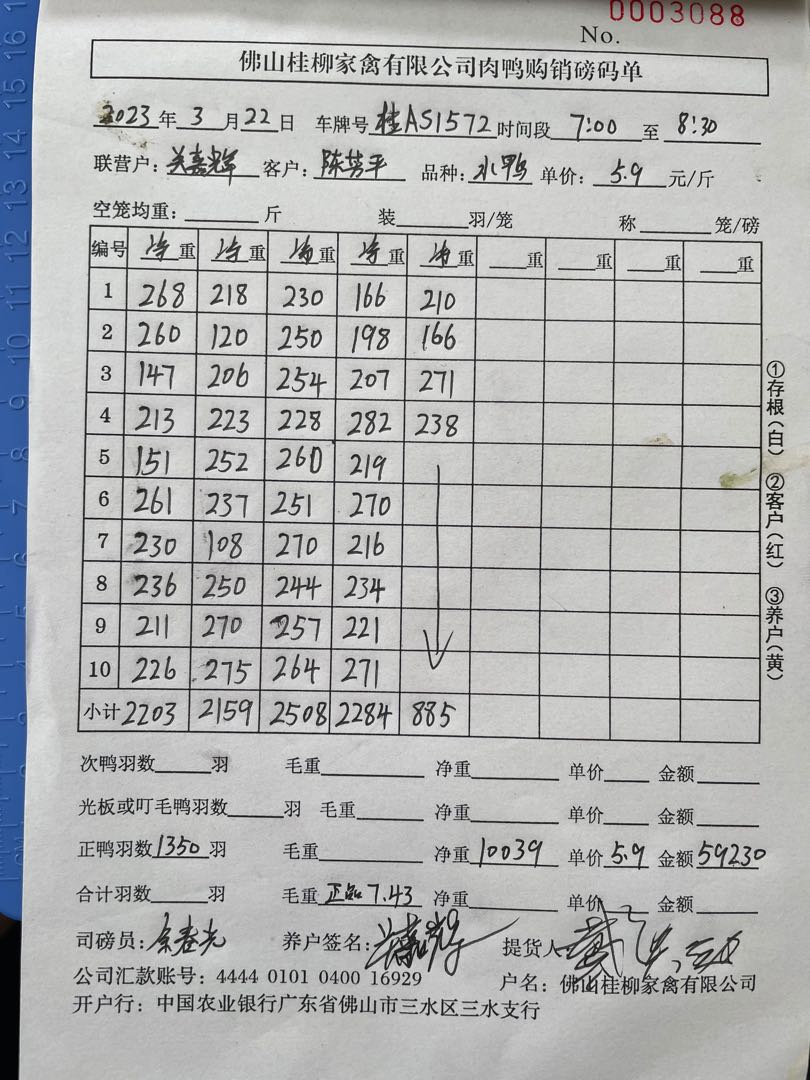 0003088
No.
佛山桂柳家禽有限公司肉鸭购销磅码单
2023年3月22日 车牌号桂AS1572时间段 7:00 至 8:30
联营户:关嘉辉 客户:陈芳平 品种:水鸭 单价:5.9元/斤
空笼均重:______斤 装______羽/笼 称______笼/磅
编号 净重 净重 净重 净重 净重 __重 __重 __重 __重
1 268 218 230 166 210
2 260 120 250 198 166
3 147 206 254 207 271
4 213 223 228 282 238
5 151 252 260 219
6 261 237 251 270
7 230 108 270 216
8 236 250 244 234
9 211 270 257 221
10 226 275 264 271
小计 2203 2159 2508 2284 885
①存根(白) ②客户(红) ③养户(黄)
次鸭羽数____羽 毛重______ 净重______ 单价____ 金额____
光板或叮毛鸭羽数____羽 毛重______ 净重______ 单价____ 金额____
正鸭羽数1350羽 毛重______ 净重10039 单价5.9 金额59230
合计羽数____羽 毛重正品7.43 净重______ 单价____ 金额____
司磅员:余春光 养户签名:关嘉辉 提货人
公司汇款账号:4444 0101 0400 16929 户名:佛山桂柳家禽有限公司
开户行:中国农业银行广东省佛山市三水区三水支行